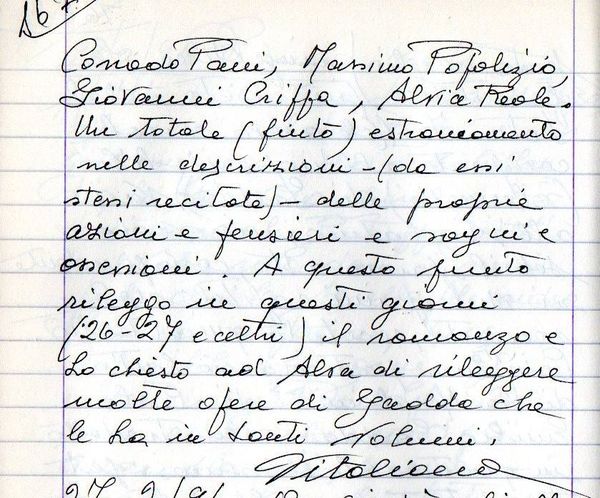 167
Corrado Pani, Massimo Popolizio,
Giovanni Criffa, Alvia Reale.
Un totale (finto) estraniamento
nelle descrizioni - (da essi
stessi recitate) - delle proprie
azioni e pensieri e sogni e
ossessioni. A questo punto
rileggo in questi giorni
(26-27 e altri) il romanzo e
ho chiesto ad Alva di rileggere
molte opere di Gadda che
le ha in tanti volumi.
Vitaliano
27